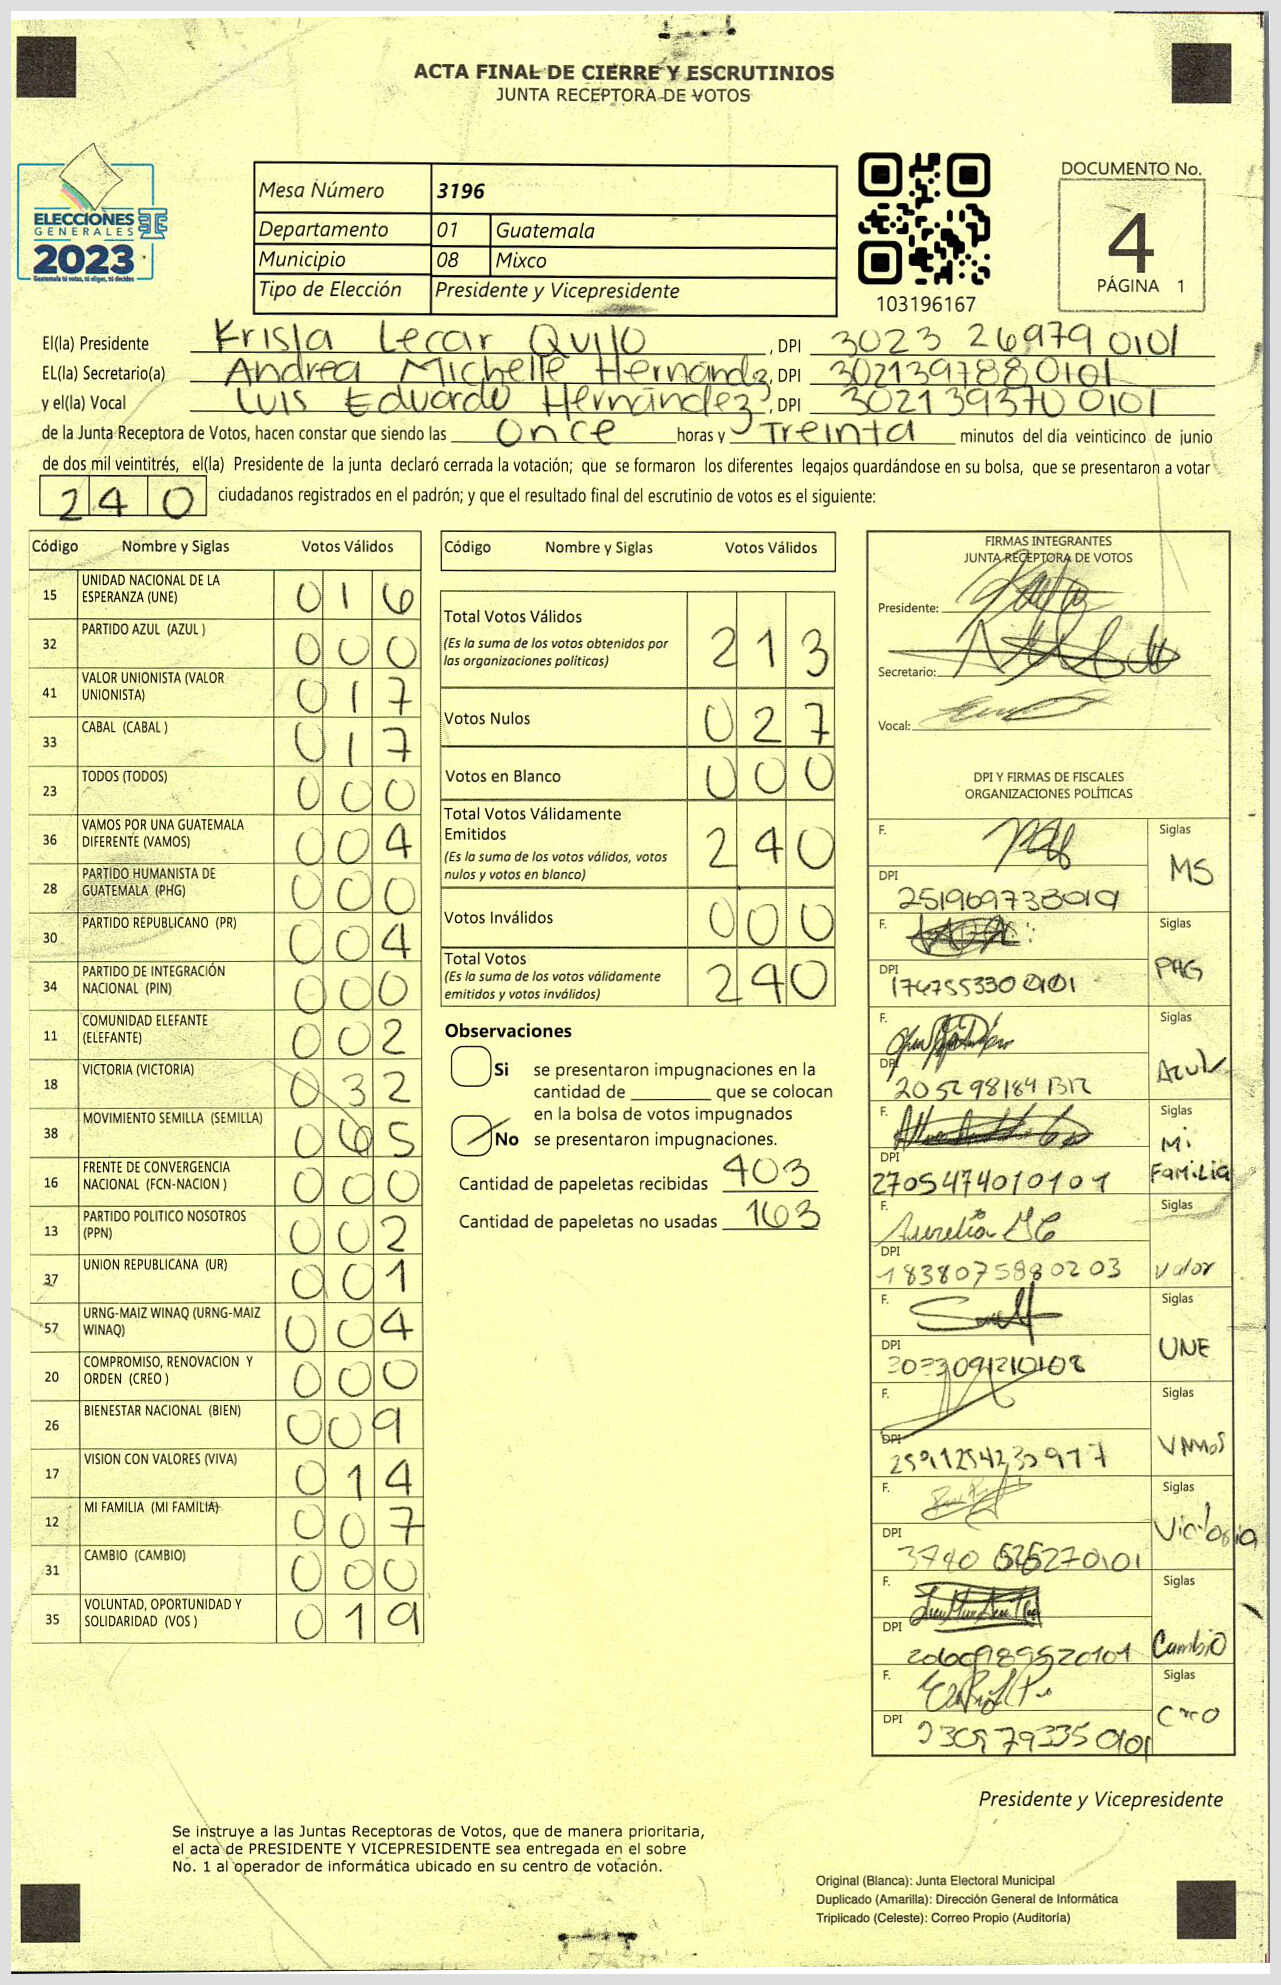 ACTA FINAL DE CIERRE Y ESCRUTINIOS
JUNTA RECEPTORA DE VOTOS
ELECCIONES
GENERALES
2023
Guatemala tú votas, tú eliges, tú decides
Mesa Número 3196
Departamento 01 Guatemala
Municipio 08 Mixco
Tipo de Elección Presidente y Vicepresidente
103196167
DOCUMENTO No.
4
PÁGINA 1
El(la) Presidente Krisla Lecar Quilo, DPI 3023 26979 0101
EL(la) Secretario(a) Andrea Michelle Hernández, DPI 3021397880101
y el(la) Vocal Luis Eduardo Hernández, DPI 302139370 0101
de la Junta Receptora de Votos, hacen constar que siendo las Once horas y Treinta minutos del día veinticinco de junio
de dos mil veintitrés, el(la) Presidente de la junta declaró cerrada la votación; que se formaron los diferentes legajos guardándose en su bolsa, que se presentaron a votar
240 ciudadanos registrados en el padrón; y que el resultado final del escrutinio de votos es el siguiente:
Código Nombre y Siglas Votos Válidos
15 UNIDAD NACIONAL DE LA ESPERANZA (UNE) 016
32 PARTIDO AZUL (AZUL ) 000
41 VALOR UNIONISTA (VALOR UNIONISTA) 017
33 CABAL (CABAL ) 017
23 TODOS (TODOS) 000
36 VAMOS POR UNA GUATEMALA DIFERENTE (VAMOS) 004
28 PARTIDO HUMANISTA DE GUATEMALA (PHG) 000
30 PARTIDO REPUBLICANO (PR) 004
34 PARTIDO DE INTEGRACIÓN NACIONAL (PIN) 000
11 COMUNIDAD ELEFANTE (ELEFANTE) 002
18 VICTORIA (VICTORIA) 032
38 MOVIMIENTO SEMILLA (SEMILLA) 065
16 FRENTE DE CONVERGENCIA NACIONAL (FCN-NACION ) 000
13 PARTIDO POLITICO NOSOTROS (PPN) 002
37 UNION REPUBLICANA (UR) 001
57 URNG-MAIZ WINAQ (URNG-MAIZ WINAQ) 004
20 COMPROMISO, RENOVACION Y ORDEN (CREO ) 000
26 BIENESTAR NACIONAL (BIEN) 009
17 VISION CON VALORES (VIVA) 014
12 MI FAMILIA (MI FAMILIA) 007
31 CAMBIO (CAMBIO) 000
35 VOLUNTAD, OPORTUNIDAD Y SOLIDARIDAD (VOS ) 019
Código Nombre y Siglas Votos Válidos
Total Votos Válidos 213
(Es la suma de los votos obtenidos por
las organizaciones políticas)
Votos Nulos 027
Votos en Blanco 000
Total Votos Válidamente
Emitidos 240
(Es la suma de los votos válidos, votos
nulos y votos en blanco)
Votos Inválidos 000
Total Votos 240
(Es la suma de los votos válidamente
emitidos y votos inválidos)
Observaciones
Si se presentaron impugnaciones en la
cantidad de ________ que se colocan
en la bolsa de votos impugnados
No se presentaron impugnaciones.
Cantidad de papeletas recibidas 403
Cantidad de papeletas no usadas 163
FIRMAS INTEGRANTES
JUNTA RECEPTORA DE VOTOS
Presidente:
Secretario:
Vocal:
DPI Y FIRMAS DE FISCALES
ORGANIZACIONES POLÍTICAS
F. Siglas
MS
DPI
F. Siglas
PHG
DPI
F. Siglas
Azul
DPI
F. Siglas
Mi
Familia
DPI 2705474010101
F. Aurelia Siglas
Valor
DPI 1838075880203
F. Siglas
UNE
DPI
F. Siglas
VAMOS
DPI
F. Siglas
Victoria
DPI
F. Siglas
Cambio
DPI
F. Siglas
DPI
Presidente y Vicepresidente
Se instruye a las Juntas Receptoras de Votos, que de manera prioritaria,
el acta de PRESIDENTE Y VICEPRESIDENTE sea entregada en el sobre
No. 1 al operador de informática ubicado en su centro de votación.
Original (Blanca): Junta Electoral Municipal
Duplicado (Amarilla): Dirección General de Informática
Triplicado (Celeste): Correo Propio (Auditoría)